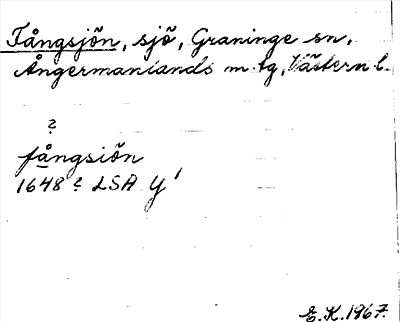 Fångsjön, sjö, Graninge sn,
Ångermanlands m. tg, Västern. l.
?
fångsiön
1648 ? LSA Y¹
E.K. 1967.